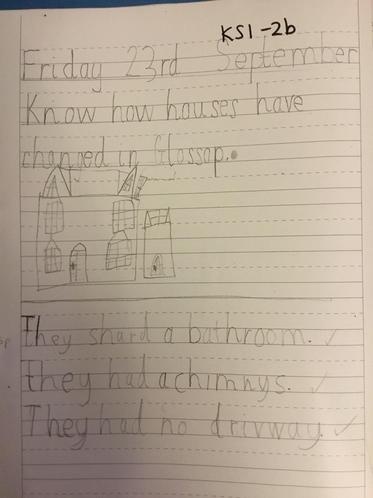 KS1-2b
Friday 23rd September
Know how houses have
changed in Glossop.
They shard a bathroom.
they had a chimnys.
They had no drivway.
sp